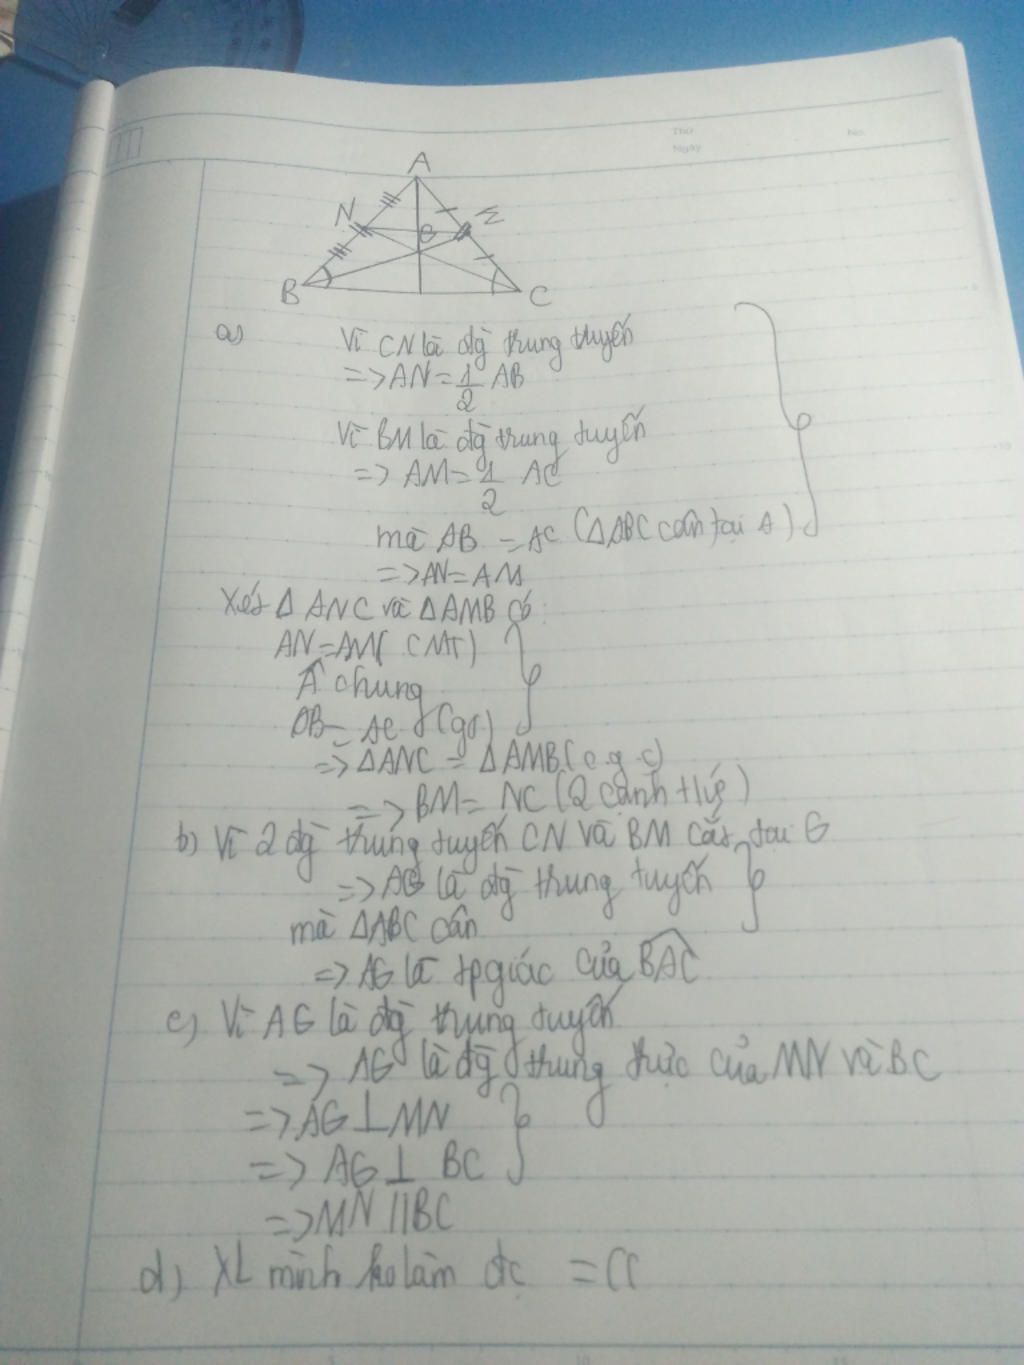 Thứ
No.
Ngày
A
N
M
G
B
C
a)
Vì CN là đg̀ trung tuyến
=> AN = 1/2 AB
Vì BM là đg̀ trung tuyến
=> AM = 1/2 AC
mà AB = AC (ΔABC cân tại A)
=> AN = AM
Xét Δ ANC và ΔAMB có:
AN = AM ( CMT)
Â chung
AB = AC (gt)
=> ΔANC = ΔAMB (c.g.c)
=> BM = NC (2 cạnh t/ứ)
b) Vì 2 đg̀ trung tuyến CN và BM cắt tại G
=> AG là đg̀ trung tuyến
mà ΔABC cân
=> AG là tpgiác của BAC
c) Vì AG là đg̀ trung tuyến
=> AG là đg̀ trung trực của MN và BC
=> AG ⊥ MN
=> AG ⊥ BC
=> MN // BC
d) XL mình ko làm đc =((